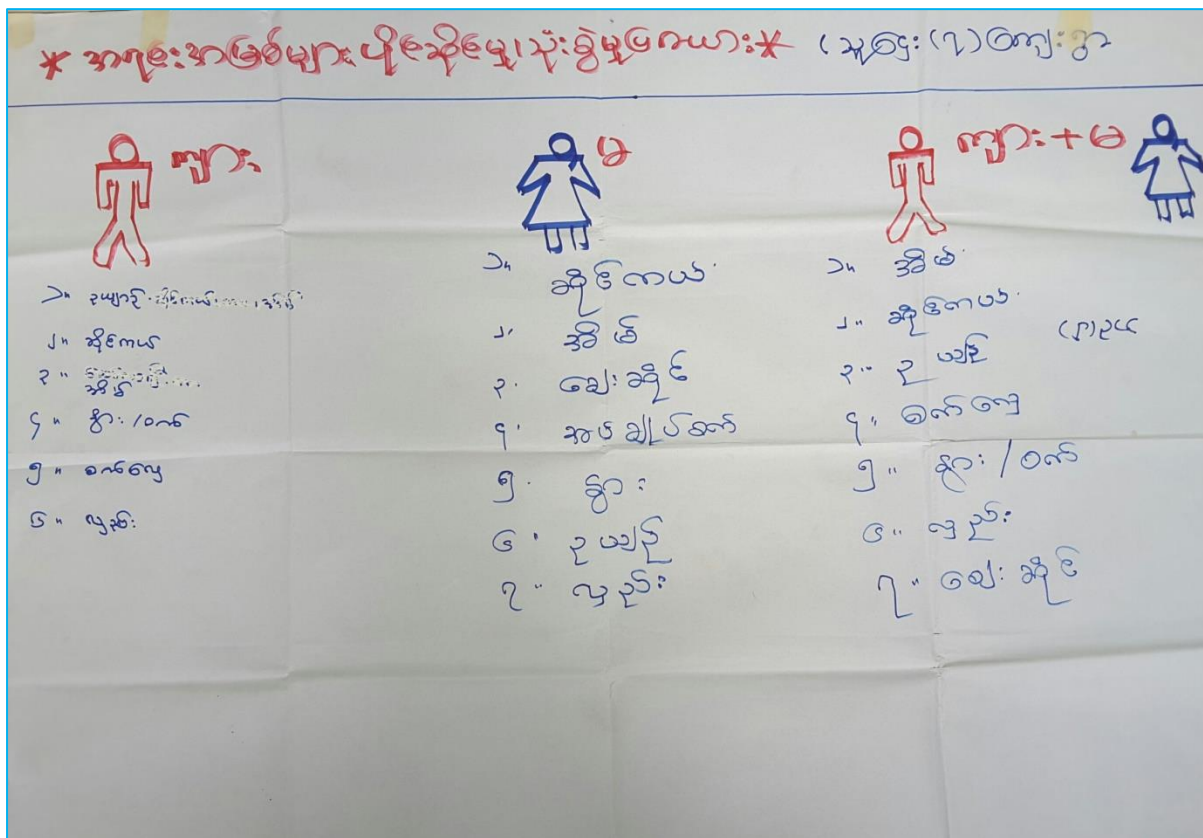 * အရင်းအမြစ်များ ပိုင်ဆိုင်မှု၊ သုံးစွဲမှုဇယား * (သူဌေး (၇) ကျေးရွာ
ကျား
၁။ ဥယျာဉ်
၂။ ဆိုင်ကယ်
၃။ အိမ်
၄။ နွား/ဝက်
၅။ စက်လှေ
၆။ လှည်း
မ
၁။ ဆိုင်ကယ်
၂။ အိမ်
၃။ ဈေးဆိုင်
၄။ အပ်ချုပ်စက်
၅။ နွား
၆။ ဥယျဉ်
၇။ လှည်း
ကျား + မ
၁။ အိမ်
၂။ ဆိုင်ကယ်
၃။ ဥယျဉ်
၄။ စက်လှေ
၅။ နွား/ဝက်
၆။ လှည်း
၇။ ဈေးဆိုင်